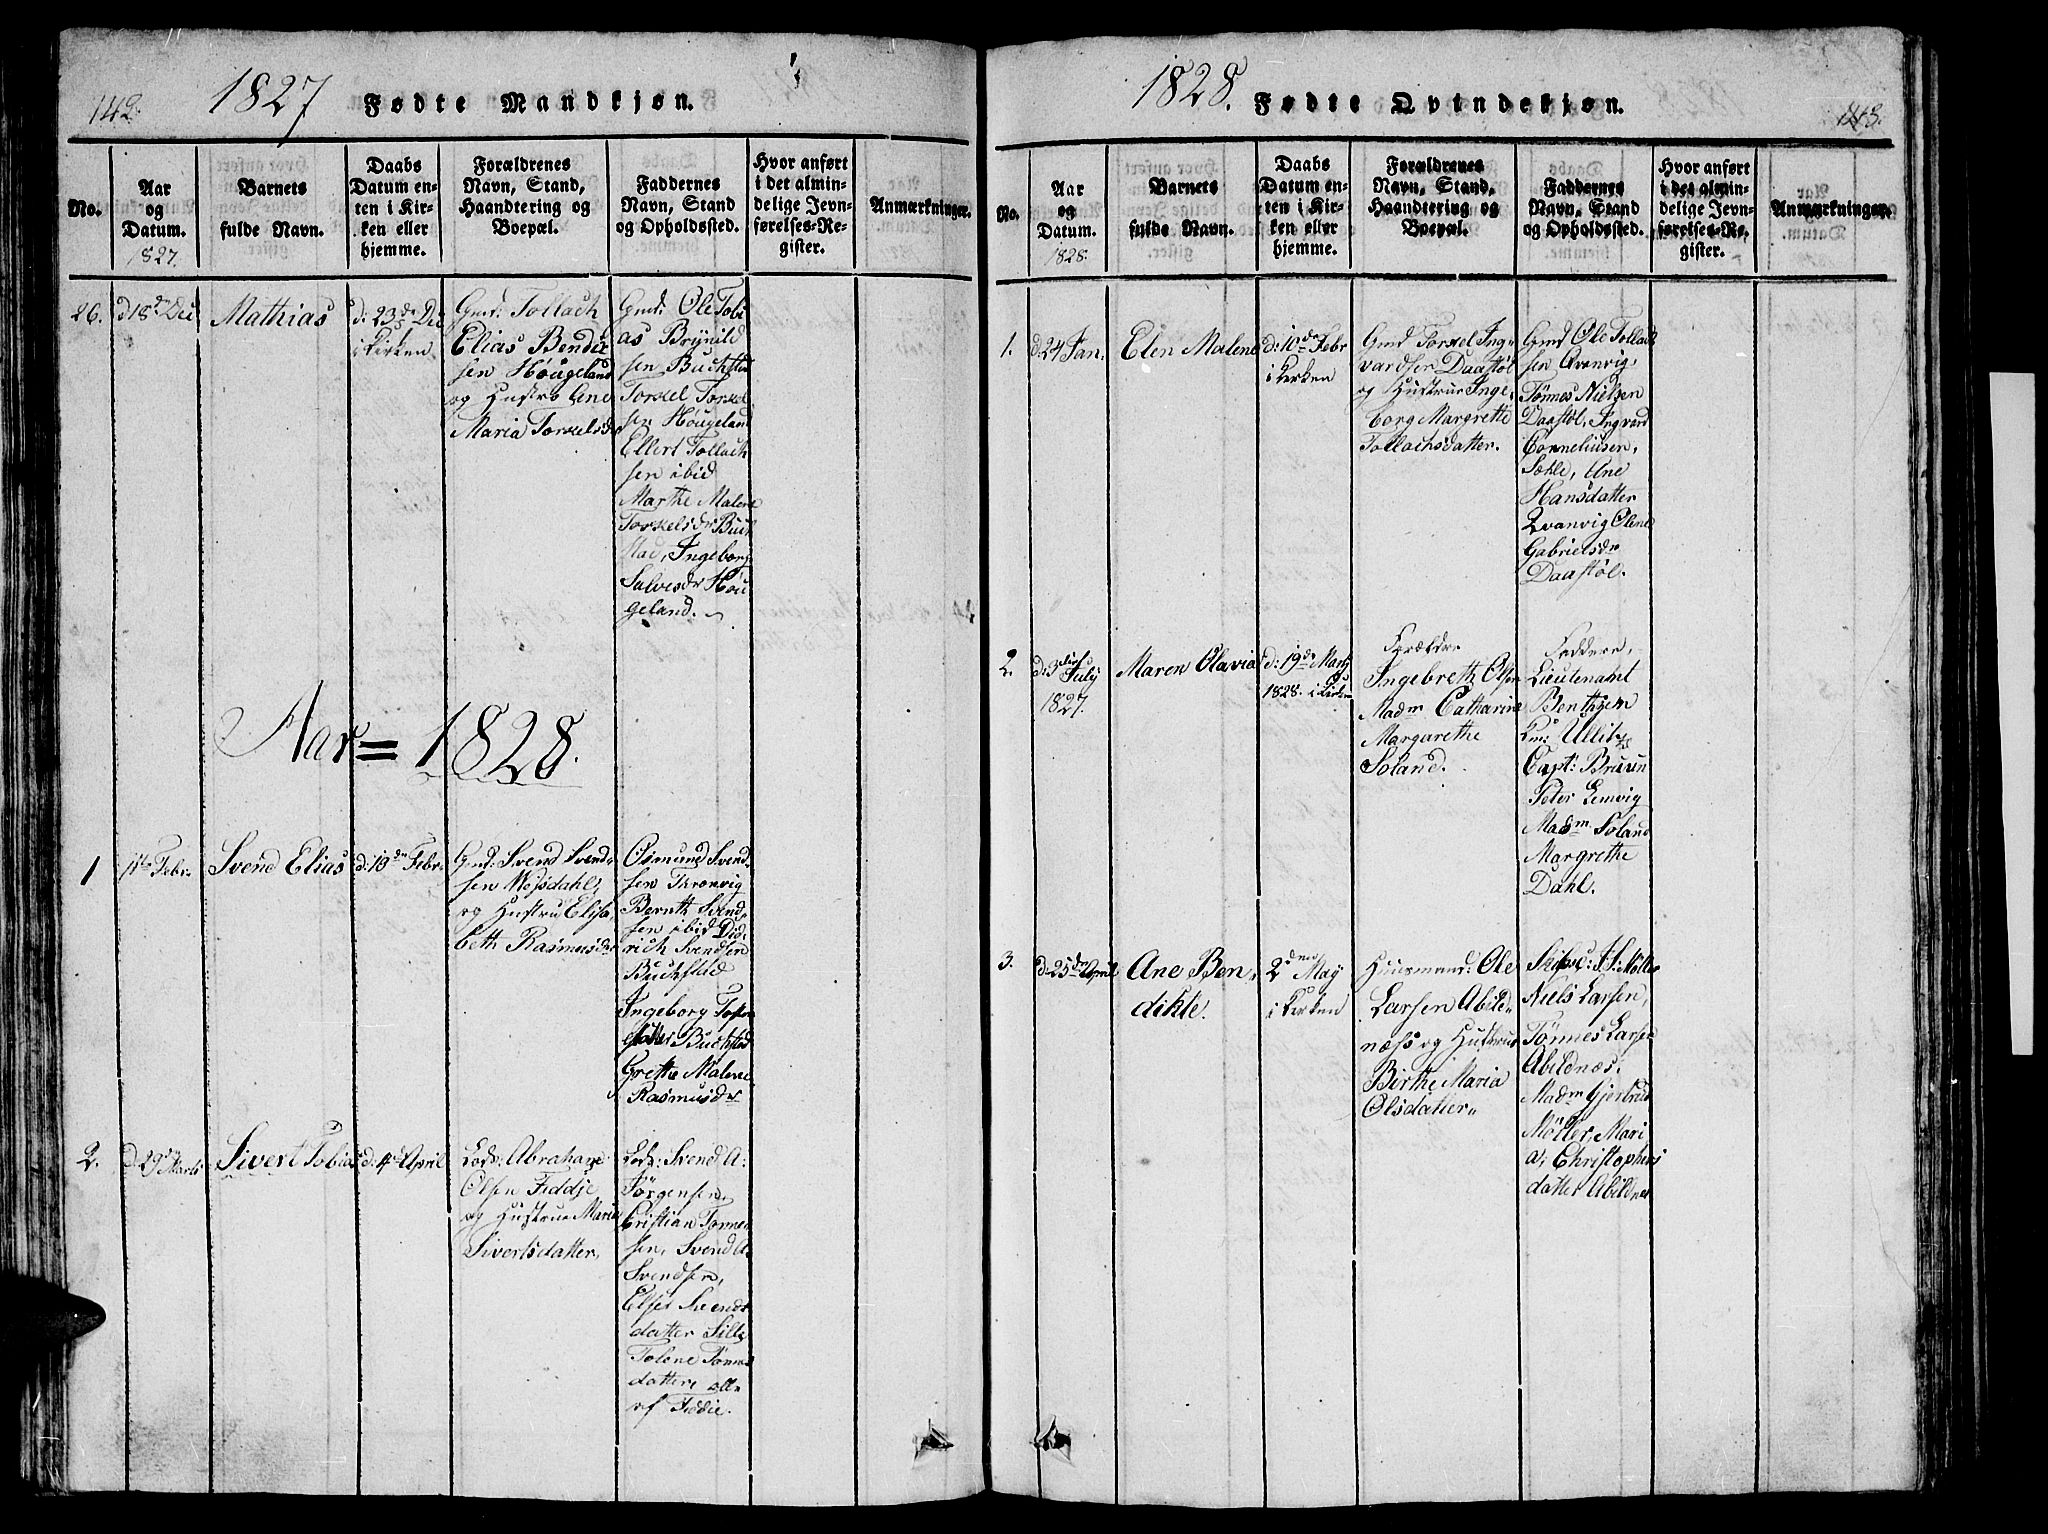 142.
1827
Fødte Mandkjøn.
No.
Aar
og
Datum.
1827.
Barnets
fulde Navn.
Daabs
Datum en-
ten i Kir-
ken eller
hjemme.
Forældrenes
Navn, Stand,
Haandtering og
Boepæl.
Faddernes
Navn, Stand
og Opholdssted.
Hvor anført
i det almin-
delige Jevn-
førelses-Re-
gister.
Anmærkninger.
26.
d 18de Dec
Mathias
d: 23de Dec
i Kirken
Gmd: Tollach
Elias Bendic
sen Høugeland
og Hustro Ane
Maria Torkelsdr
Gmd: Ole Tobi
as Brynild
sen Buchsted
Torkel Torkel
sen Høugeland
Ellert Tollach
sen ibid
Marthe Malene
Torkelsdr Buch
stad, Ingeborg
Salvesdr Høu
geland.
Aar = 1828.
1
Febr.
Svend Elias
d: 19de Febr.
Gmd: Svend Svend-
sen
og Hustru Elisa
beth Rasmusdr
Osmund Svend-
sen
Bernth Svend-
sen ibid Did-
rich Svendsen
Buchsted
Ingeborg
Buchsted
Grethe Malene
Rasmusdr
2.
d 29 Marti
Sivert Tobias
d: 4de April
Lods: Abraham
Olsen Feddje
og Hustrue Maria
Sivertsdatter,
Lods: Svend A-
Jörgensen,
Cristian Tönne-
sen, Svend A-
Svendsen,
Elset Svends
datter Sille
Tolene Tönnes
datter alle
af Feddie.
1828.
Fødte Qvindekjøn.
143.
No.
Aar
og
Datum.
1828.
Barnets
fulde Navn.
Daabs
Datum en-
ten i Kir-
ken eller
hjemme.
Forældrenes
Navn, Stand,
Haandtering og
Boepæl.
Faddernes
Navn, Stand
og Opholdssted.
Hvor anført
i det almin-
delige Jevn-
førelses-Re-
gister.
Anmærkninger.
1.
d: 24 Jan.
Elen Malene
d: 10de Febr
i Kirken
Gmd Torkel Ing-
vardsen Daastøl
og Hustrue Inge-
borg Margrethe
Tollachsdatter.
Gmd Ole Tollach
sen Qvanvig
Tönnes Nielsen
Daastøl, Ingvard
Corneliusen,
Ane
Hansdatter
Qvanvig Olene
Gabrielsdr
Daastøl.
2.
d: 3die July
1827.
Maren Olavia
d: 19de Marty
1828. i Kirken
Forældre
Ingebreth Olsen
Madm Catharine
Margarethe
Soland.
Faddere,
Lieutenant
Benthzen
Ullitz
Capt: Bruun
Peter Lemvig
Madm Soland
Margrethe
Dahl.
3.
d: 25de April
Ane Ben-
dikte.
2den May
i Kirken
Huusmand: Ole
Larsen Abild-
næss og Hustrue
Birthe Maria
Olsdatter
J: Møller
Niels Larsen,
Tönnes Larsen
Abildnæs.
Madm Gjertrud
Møller, Mari
a, Christophers
datter Abildnes